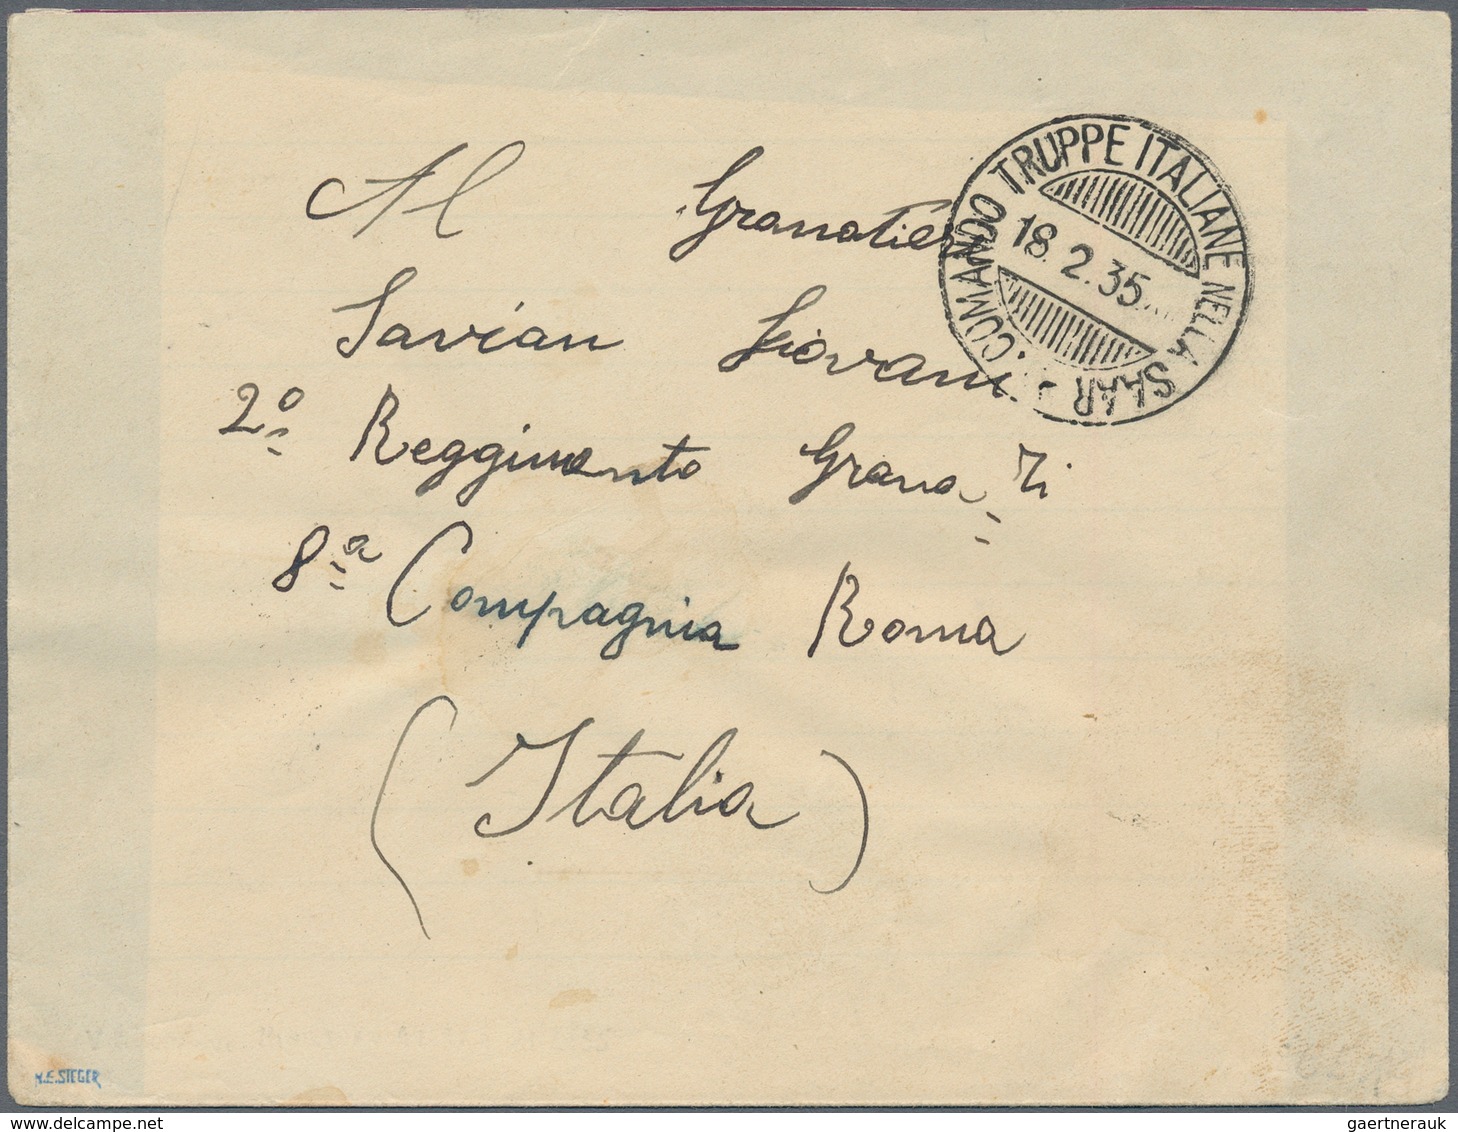 Al Granatier
Savian Giovani
2º Reggimento Grana-ti
8ª Compagnia Roma
(Italia)
COMANDO TRUPPE ITALIANE NELLA SAAR
18.2.35
H.E.STEGER
www.delcampe.net
gaertnerauk